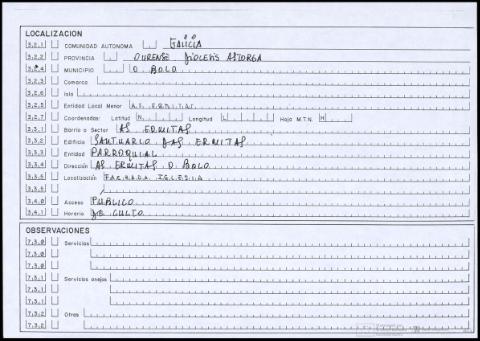 LOCALIZACION
3.2.1 COMUNIDAD AUTONOMA GALICIA
3.2.2 PROVINCIA OURENSE DIOCESIS ASTORGA
3.2.4 MUNICIPIO O BOLO
3.2.3 Comarca
3.2.5 Isla
3.2.6 Entidad Local Menor AS ERMITAS
3.2.7 Coordenadas: Latitud N Longitud Hoja M.T.N. H
3.3.1 Barrio o Sector AS ERMITAS
3.3.2 Edificio SANTUARIO DAS ERMITAS
3.3.3 Entidad PARROQUIAL
3.3.4 Dirección AS ERMITAS O BOLO
3.3.5 Localización FACHADA IGLESIA
3.3.5
3.4.0 Acceso PUBLICO
3.4.1 Horario DE CULTO
OBSERVACIONES
7.3.0 Servicios
7.3.0
7.3.0
7.3.1 Servicios anejos
7.3.1
7.3.1
7.3.2 Otros
7.3.2